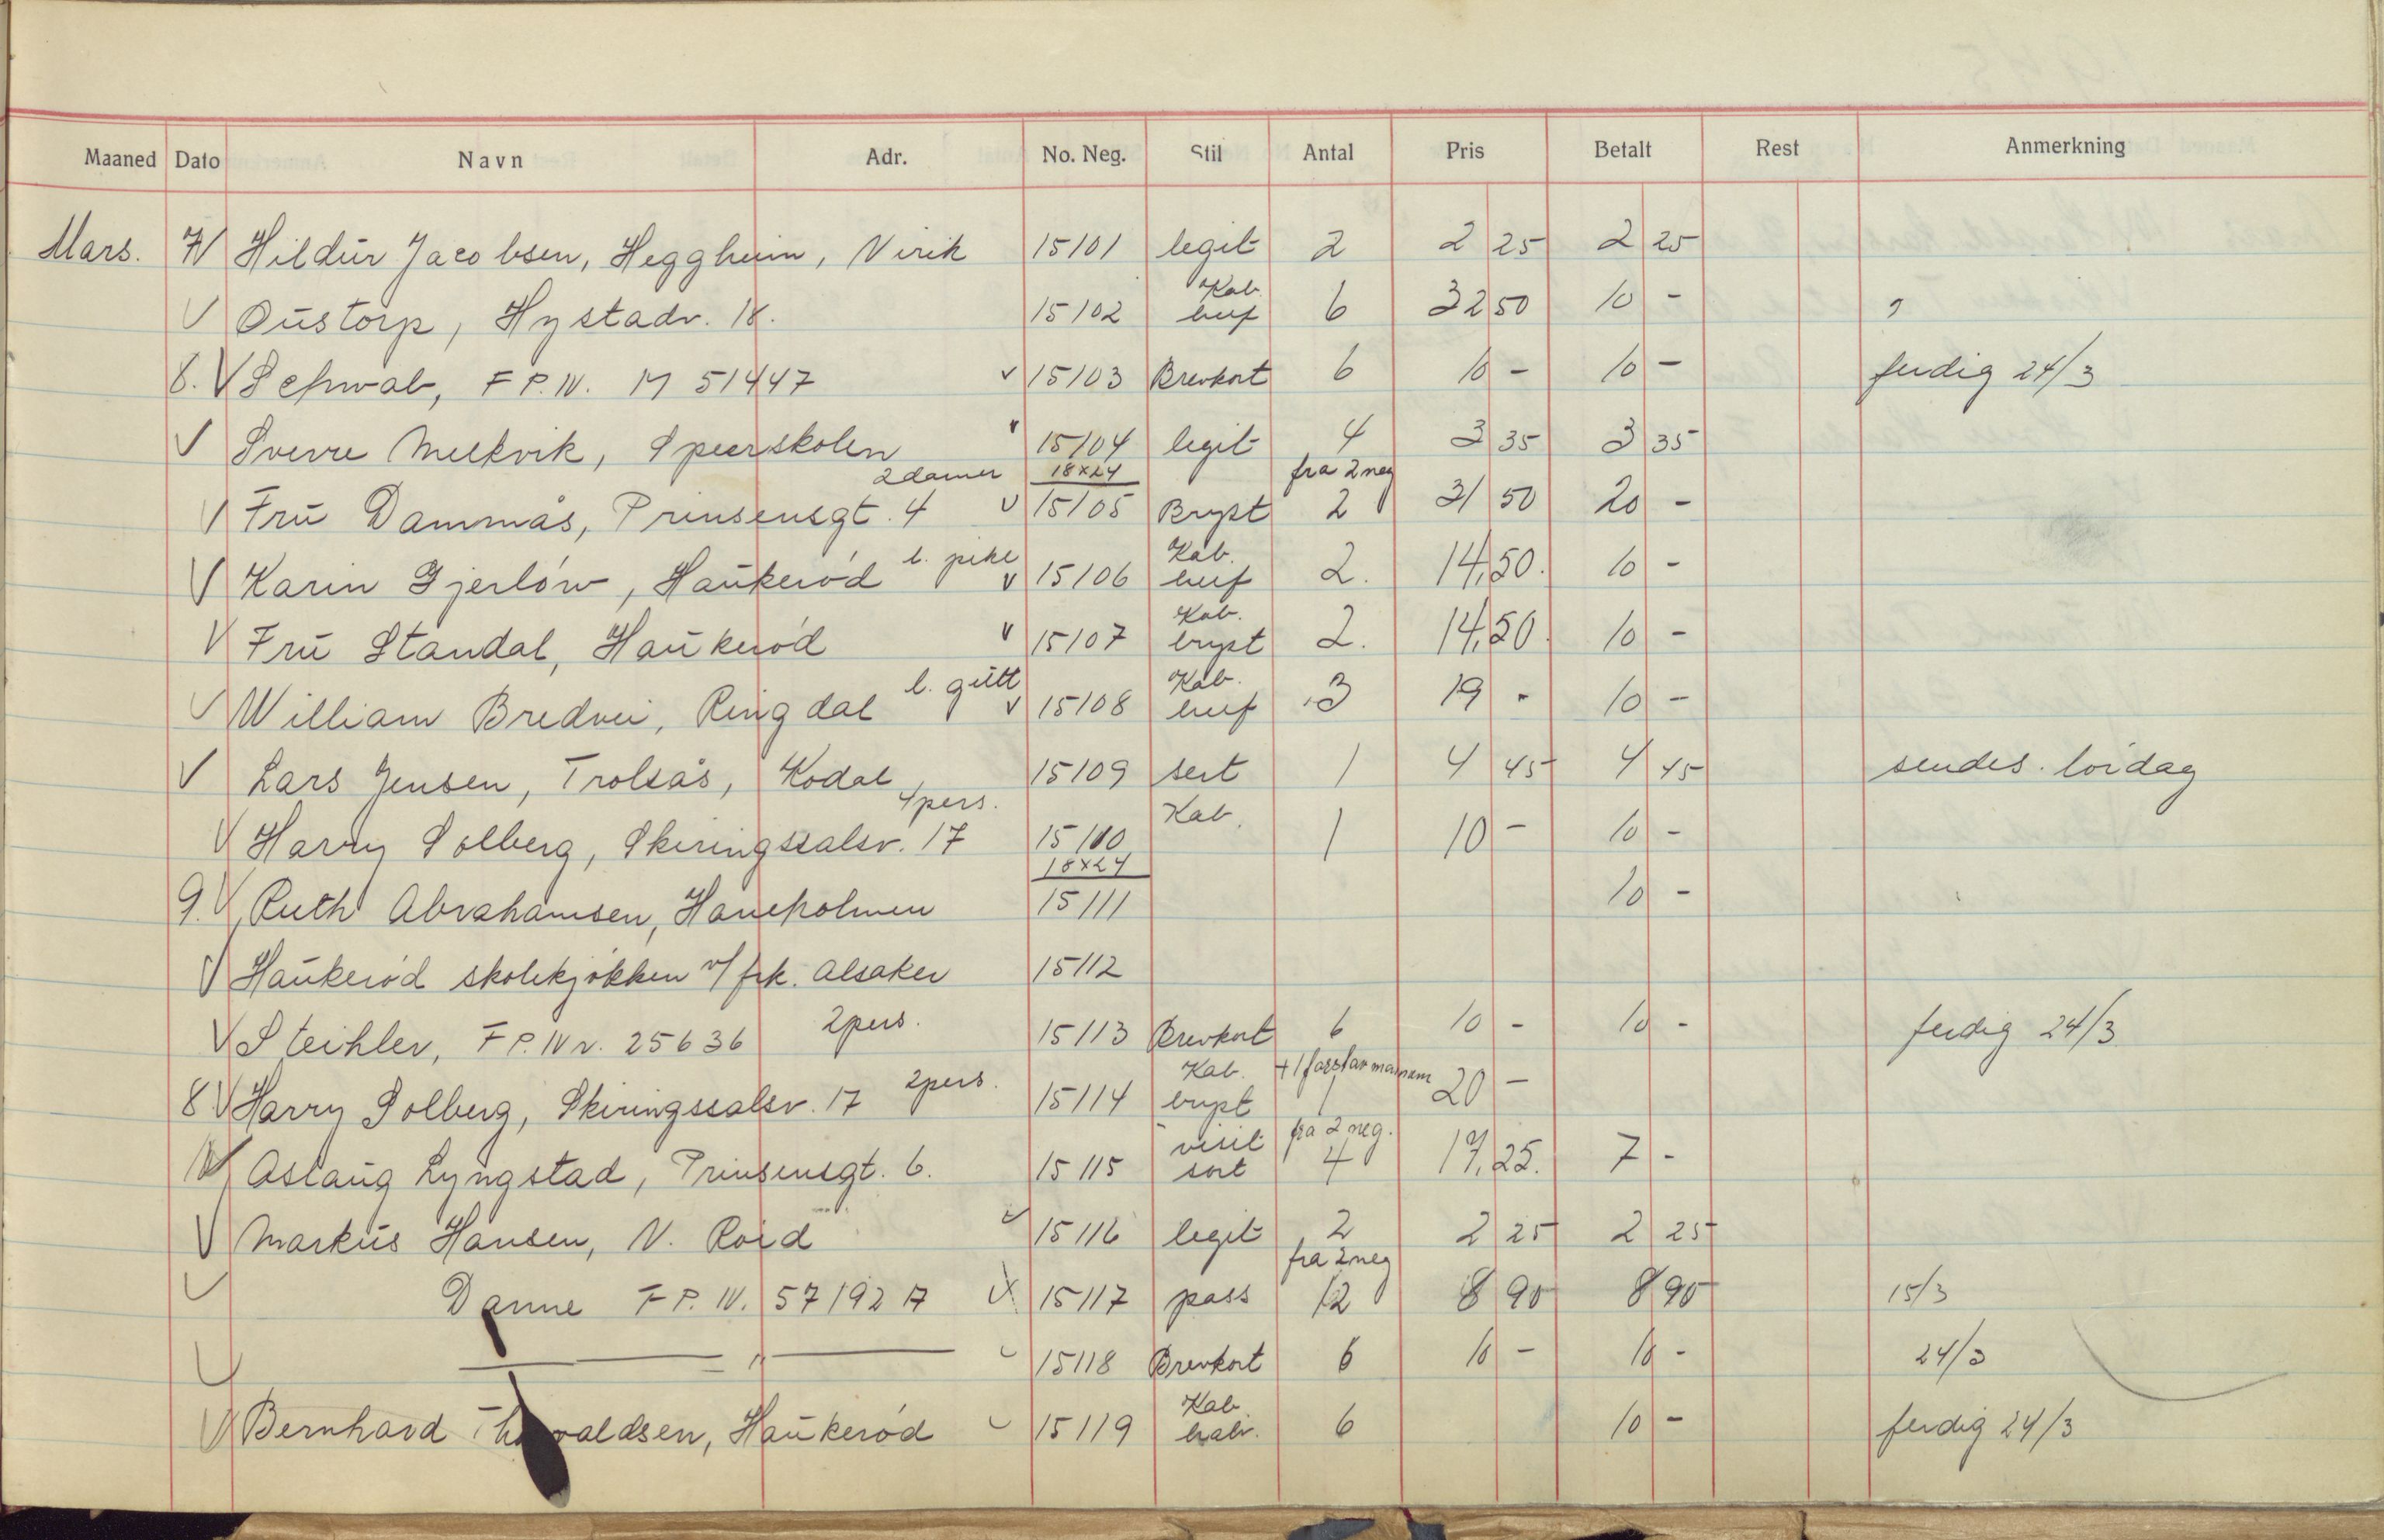 Maaned Dato Navn Adr. No. Neg. Stil Antal Pris Betalt Rest Anmerkning
Mars. 7 V Hildur Jacobsen, Heggheim, Virik 15101 legit 2 2 25 2 25
Kab.
V Oustorp, Hystadv. 18. 15102 6 32 50 10 -
8. V Schwab, F P. N. M 51447 v 15103 Brevkort 6 10 - 10 - ferdig 24/3
V Sverre Melkvik, Speerskolen v 15104 legit 4 3 35 3 35
2 damer 18x24 fra 2 neg
V Fru Dammås, Prinsensgt. 4 v 15105 Bryst 2 31 50 20 -
l. pike Kab.
V Karin Gjerlöw, Haukeröd v 15106 2. 14,50. 10 -
Kab.
V Fru Standal, Haukeröd v 15107 bryst 2. 14,50. 10 -
l. gutt Kab.
V William Bredvei, Ringdal v 15108 3 19 - 10 -
V Lars Jensen, Trolsås, Kodal 15109 sert 1 4 45 4 45 sendes. lördag
4 pers. Kab.
V Harry Solberg, Skiringssalsv. 17 15110 1 10 - 10 -
18x24
9. V Ruth Abrahamsen, Haneholmen 15111 10 -
V Haukeröd skolekjökken v/ frk. Alsaker 15112
V Steihler, F P. N r. 25636 2 pers. 15113 Brevkort 6 10 - 10 - ferdig 24/3
Kab.
8 V Harry Solberg, Skiringssalsv. 17 2 pers. 15114 bryst 1 20 -
visit fra 2 neg.
V Aslaug Lyngstad, Prinsensgt. 6. 15115 sort 4 17,25. 7 -
V Markus Hansen, N. Röid 15116 legit 2 2 25 2 25
fra 2 neg
V Danne F P. N. 57192 A 15117 pass 12 8 90 8 90 15/3
V — " — 15118 Brevkort 6 10 - 10 - 24/3
Kab.
V Bernhard Thorvaldsen, Haukeröd 15119 halv. 6 10 - ferdig 24/3